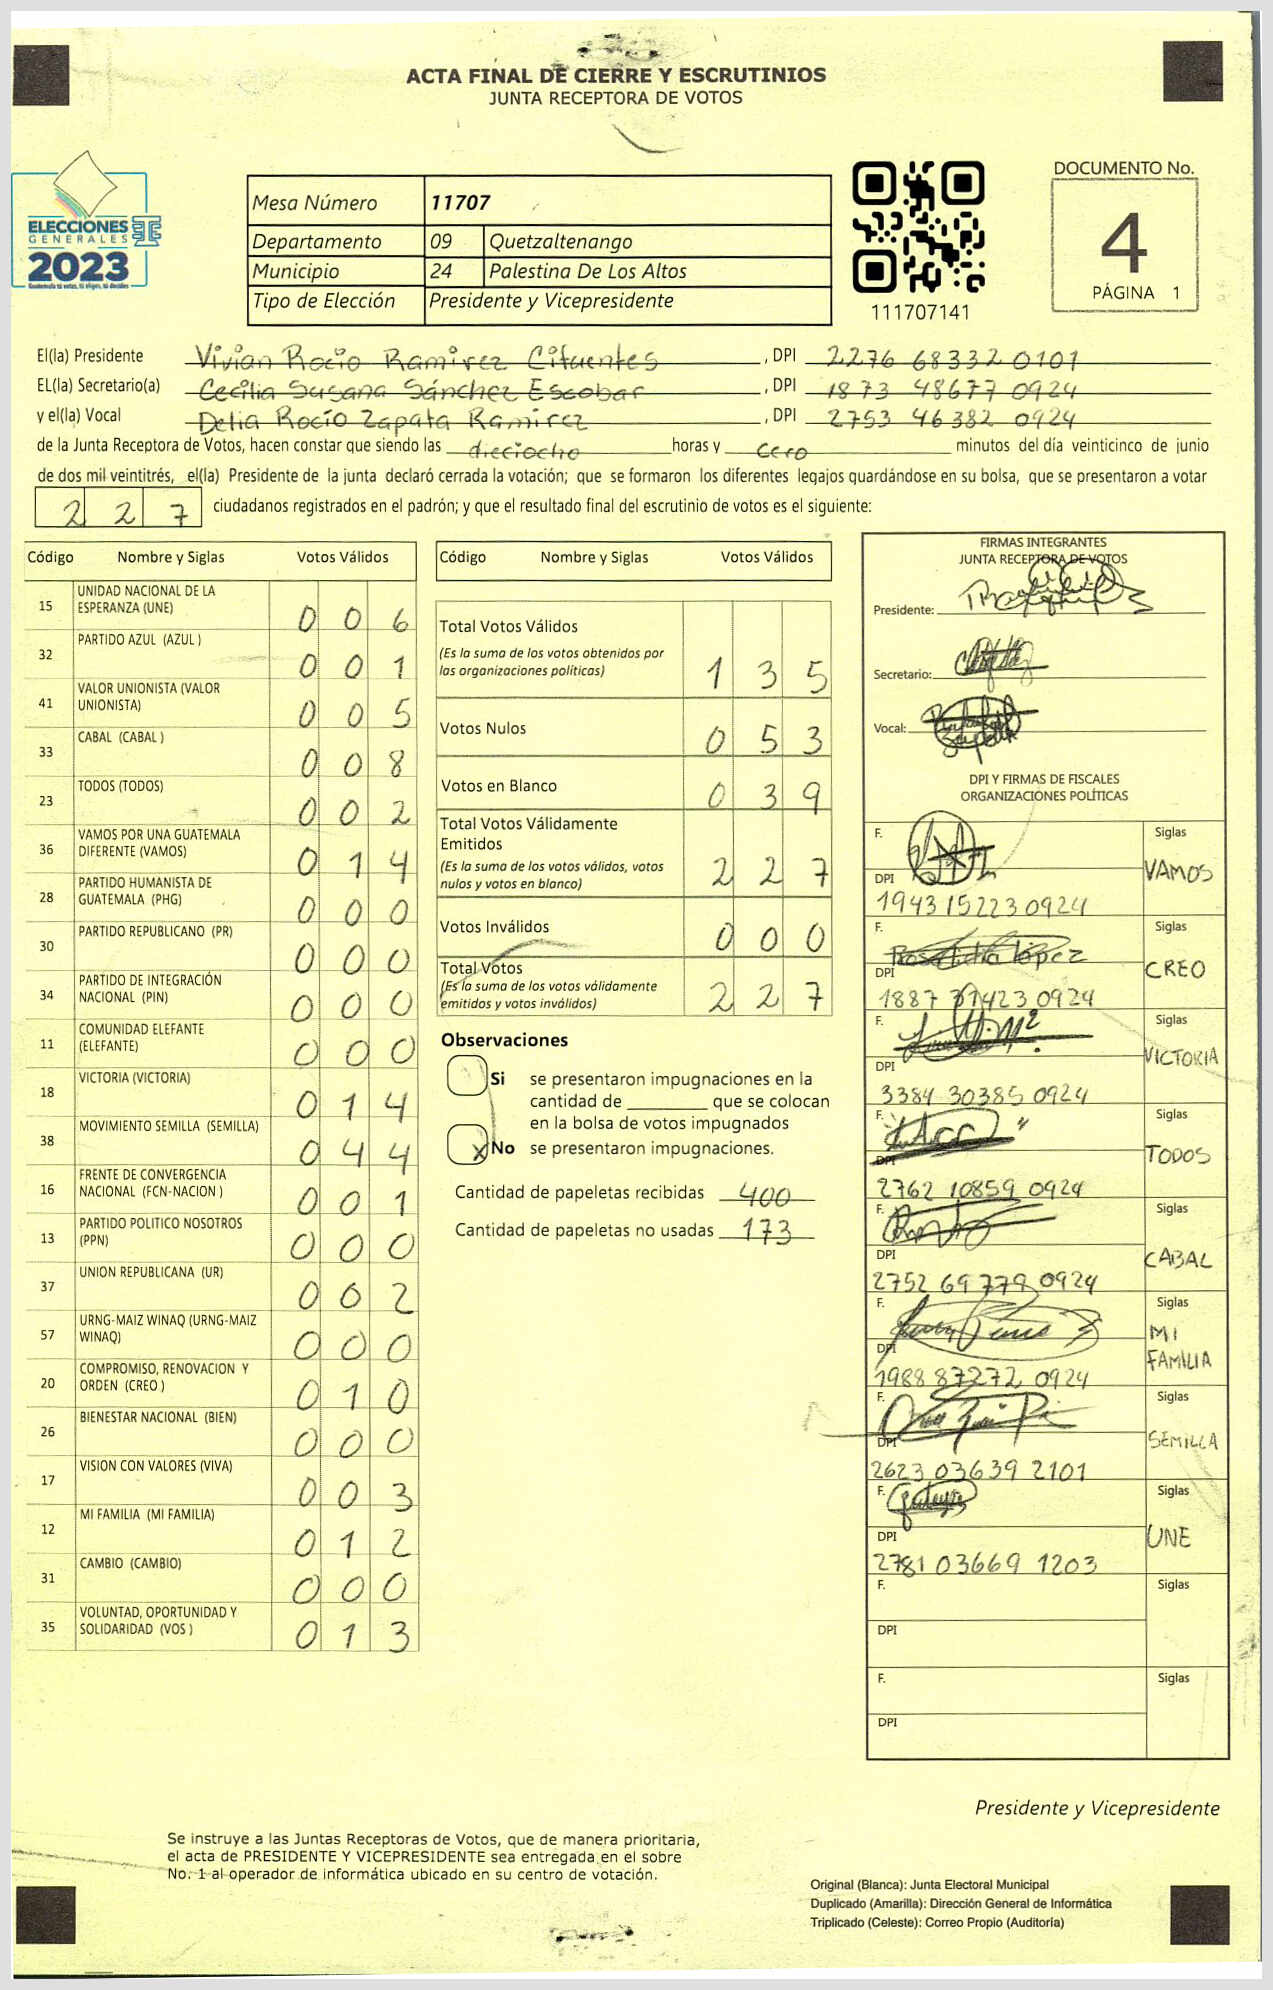 ACTA FINAL DE CIERRE Y ESCRUTINIOS
JUNTA RECEPTORA DE VOTOS
ELECCIONES
GENERALES
2023
Guatemala tú votas, tú eliges, tú decides
Mesa Número 11707
Departamento 09 Quetzaltenango
Municipio 24 Palestina De Los Altos
Tipo de Elección Presidente y Vicepresidente
111707141
DOCUMENTO No.
4
PÁGINA 1
El(la) Presidente Vivian Rocío Ramirez Cifuentes , DPI 2276 68332 0101
EL(la) Secretario(a) Cecilia Susana Sánchez Escobar , DPI 1873 48677 0924
y el(la) Vocal Delia Rocío Zapata Ramirez , DPI 2753 46382 0924
de la Junta Receptora de Votos, hacen constar que siendo las dieciocho horas y cero minutos del día veinticinco de junio
de dos mil veintitrés, el(la) Presidente de la junta declaró cerrada la votación; que se formaron los diferentes legajos guardándose en su bolsa, que se presentaron a votar
227 ciudadanos registrados en el padrón; y que el resultado final del escrutinio de votos es el siguiente:
Código Nombre y Siglas Votos Válidos
15 UNIDAD NACIONAL DE LA
ESPERANZA (UNE) 006
32 PARTIDO AZUL (AZUL ) 001
41 VALOR UNIONISTA (VALOR
UNIONISTA) 005
33 CABAL (CABAL ) 008
23 TODOS (TODOS) 002
36 VAMOS POR UNA GUATEMALA
DIFERENTE (VAMOS) 014
28 PARTIDO HUMANISTA DE
GUATEMALA (PHG) 000
30 PARTIDO REPUBLICANO (PR) 000
34 PARTIDO DE INTEGRACIÓN
NACIONAL (PIN) 000
11 COMUNIDAD ELEFANTE
(ELEFANTE) 000
18 VICTORIA (VICTORIA) 014
38 MOVIMIENTO SEMILLA (SEMILLA) 044
16 FRENTE DE CONVERGENCIA
NACIONAL (FCN-NACION ) 001
13 PARTIDO POLITICO NOSOTROS
(PPN) 000
37 UNION REPUBLICANA (UR) 002
57 URNG-MAIZ WINAQ (URNG-MAIZ
WINAQ) 000
20 COMPROMISO, RENOVACION Y
ORDEN (CREO ) 010
26 BIENESTAR NACIONAL (BIEN) 000
17 VISION CON VALORES (VIVA) 003
12 MI FAMILIA (MI FAMILIA) 012
31 CAMBIO (CAMBIO) 000
35 VOLUNTAD, OPORTUNIDAD Y
SOLIDARIDAD (VOS ) 013
Código Nombre y Siglas Votos Válidos
Total Votos Válidos
(Es la suma de los votos obtenidos por
las organizaciones políticas) 135
Votos Nulos 053
Votos en Blanco 039
Total Votos Válidamente
Emitidos
(Es la suma de los votos válidos, votos
nulos y votos en blanco) 227
Votos Inválidos 000
Total Votos
(Es la suma de los votos válidamente
emitidos y votos inválidos) 227
Observaciones
Si se presentaron impugnaciones en la
cantidad de ________ que se colocan
en la bolsa de votos impugnados
x No se presentaron impugnaciones.
Cantidad de papeletas recibidas 400
Cantidad de papeletas no usadas 173
FIRMAS INTEGRANTES
JUNTA RECEPTORA DE VOTOS
Presidente:
Secretario:
Vocal:
DPI Y FIRMAS DE FISCALES
ORGANIZACIONES POLÍTICAS
F. Siglas
VAMOS
DPI
1943 15223 0924
F. Siglas
CREO
DPI
1887 31423 0924
F. Siglas
VICTORIA
DPI
3384 30385 0924
F. Siglas
TODOS
DPI
2762 10859 0924
F. Siglas
CABAL
DPI
2752 69779 0924
F. Siglas
MI
FAMILIA
DPI
1988 87272 0924
F. Siglas
SEMILLA
DPI
2623 03639 2101
F. Siglas
UNE
DPI
2781 03669 1203
F. Siglas
DPI
F. Siglas
DPI
Presidente y Vicepresidente
Se instruye a las Juntas Receptoras de Votos, que de manera prioritaria,
el acta de PRESIDENTE Y VICEPRESIDENTE sea entregada en el sobre
No. 1 al operador de informática ubicado en su centro de votación.
Original (Blanca): Junta Electoral Municipal
Duplicado (Amarilla): Dirección General de Informática
Triplicado (Celeste): Correo Propio (Auditoría)